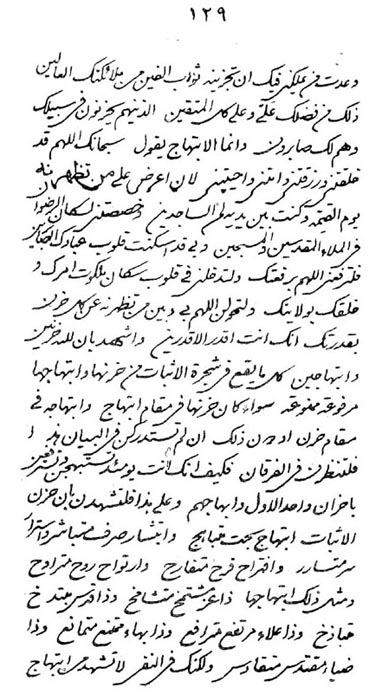 ١٢٩
وعدت في علمك فيك ان تجزينه ثواب الفين من ملائكتك العالين
ذلك من فضلك علي وعلى كل المتقين الذينهم يحزنون في سبيلك
وهم لك صابرون وانما الابتهاج يقول سبحانك اللهم قد
خلقتني ورزقتني وامتني واحييتني لان اعرض على من تظهرنه
يوم القيمة وكنت بين يديه لمن الساجدين وخصصتني لسكان الرضوان
في الملاء المقدسين والمسبحين وبي قد اسكنت قلوب عبادك
فلترفعن اللهم برفعتك ولتدخلني في قلوب سكان ملكوت امرك و
خلقك بولايتك ولتحولن اللهم بي وبين من تظهرنه عن كل حزن
بقدرتك انك انت اقدر الاقدرين واشهد بان للله حزنين
وابتهاجين كل ما يقع في شجرة الاثبات من حزنها وابتهاجها
مرفوعة ممنوعة سواء كان حزنها في مقام ابتهاج وابتهاجه في
مقام حزن او دون ذلك ان لم تستدركن في البيان هذا
فلتنظرن في الفرقان فكيف انك انت يومئذ تستبهجن
باحزان واحد الاول وابهاجهم وعلى هذا فلتشهدن بان حزن
الاثبات ابتهاج بحت متباهج وابتشار صرف متباشر واسترار
سر متسارر وافتراح فرح متفارح وارتواح روح متراوح
ومثل ذلك ابتهاجها ذا عز شتمخ متشامخ وذا قدس بتذخ
متباذخ وذا علاء مرتفع مترافع وذا بهاء ممتنع متمانع وذا
ضياء مقتدس متقادس ولكنك في النفي لا تشهد من ابتهاج